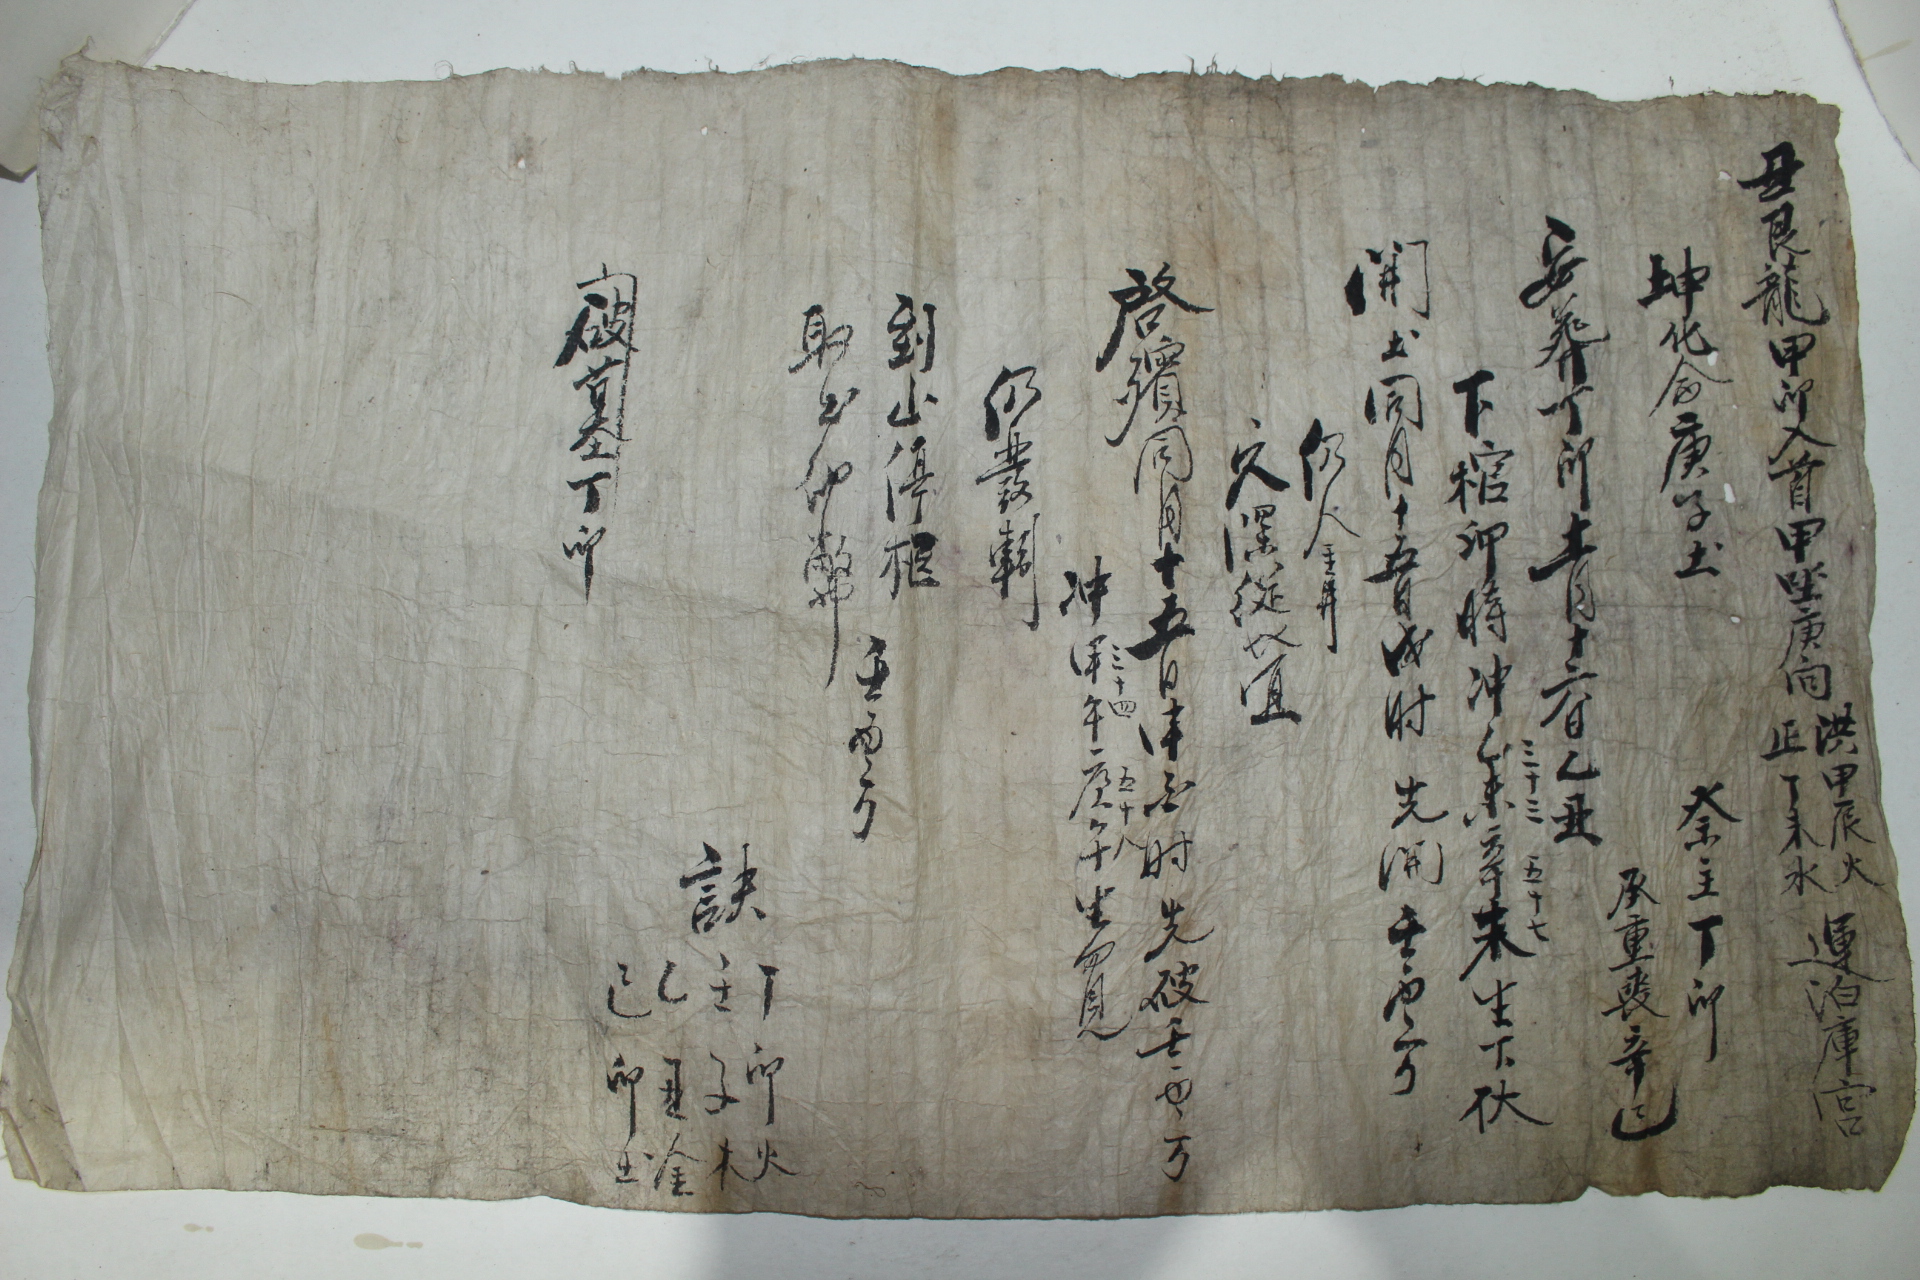 丑艮龍甲卯入首甲坐庚向
洪甲辰火
正丁未水
運泊庫宮
坤化命庚子土
祭主丁卯
承重喪辛巳
安葬丁卯十二月十六日乙丑
下棺卯時冲乙未辛未生下伏
三十三 五十七
開土同月十五日戌時先開壬方
仍人主丹
穴深從宜
啓殯同月十五日時先破壬方
冲午庚午生
三十四 五十八
仍發靷
到山停柩
取出
壬方
破墓丁卯
訣
丁卯火
壬子木
乙丑金
己卯土